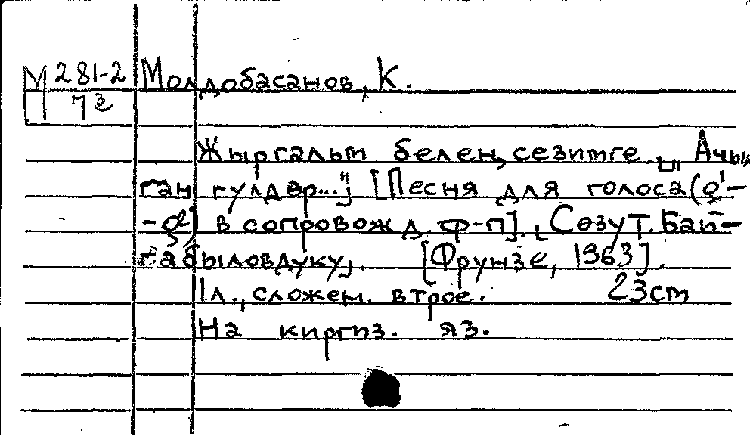 М 281-2 Молдобасанов, К.
7 2
Жыргалып белең, сезимге „Ачыл
ган гулдөр..." [Песня для голоса (
в сопровожд. ф-п]. Созу Т. Бай-
габыловдуку. [Фрунзе, 1963].
1 л., сложен. втрое. 23 cm
На киргиз. яз.